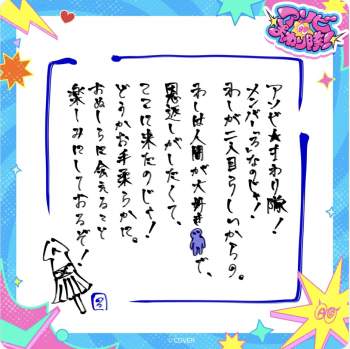 アソビ
まわり隊!
アソビ★まわり隊!
メンバー「ろ」なのじゃ!
わしが二人目らしいからの。
わしは人間が大好きで、
恩返しがしたくて、
ここに来たのじゃ!
どうかお手柔らかに。
おぬしらに会えることを
楽しみにしておるぞ!
© COVER